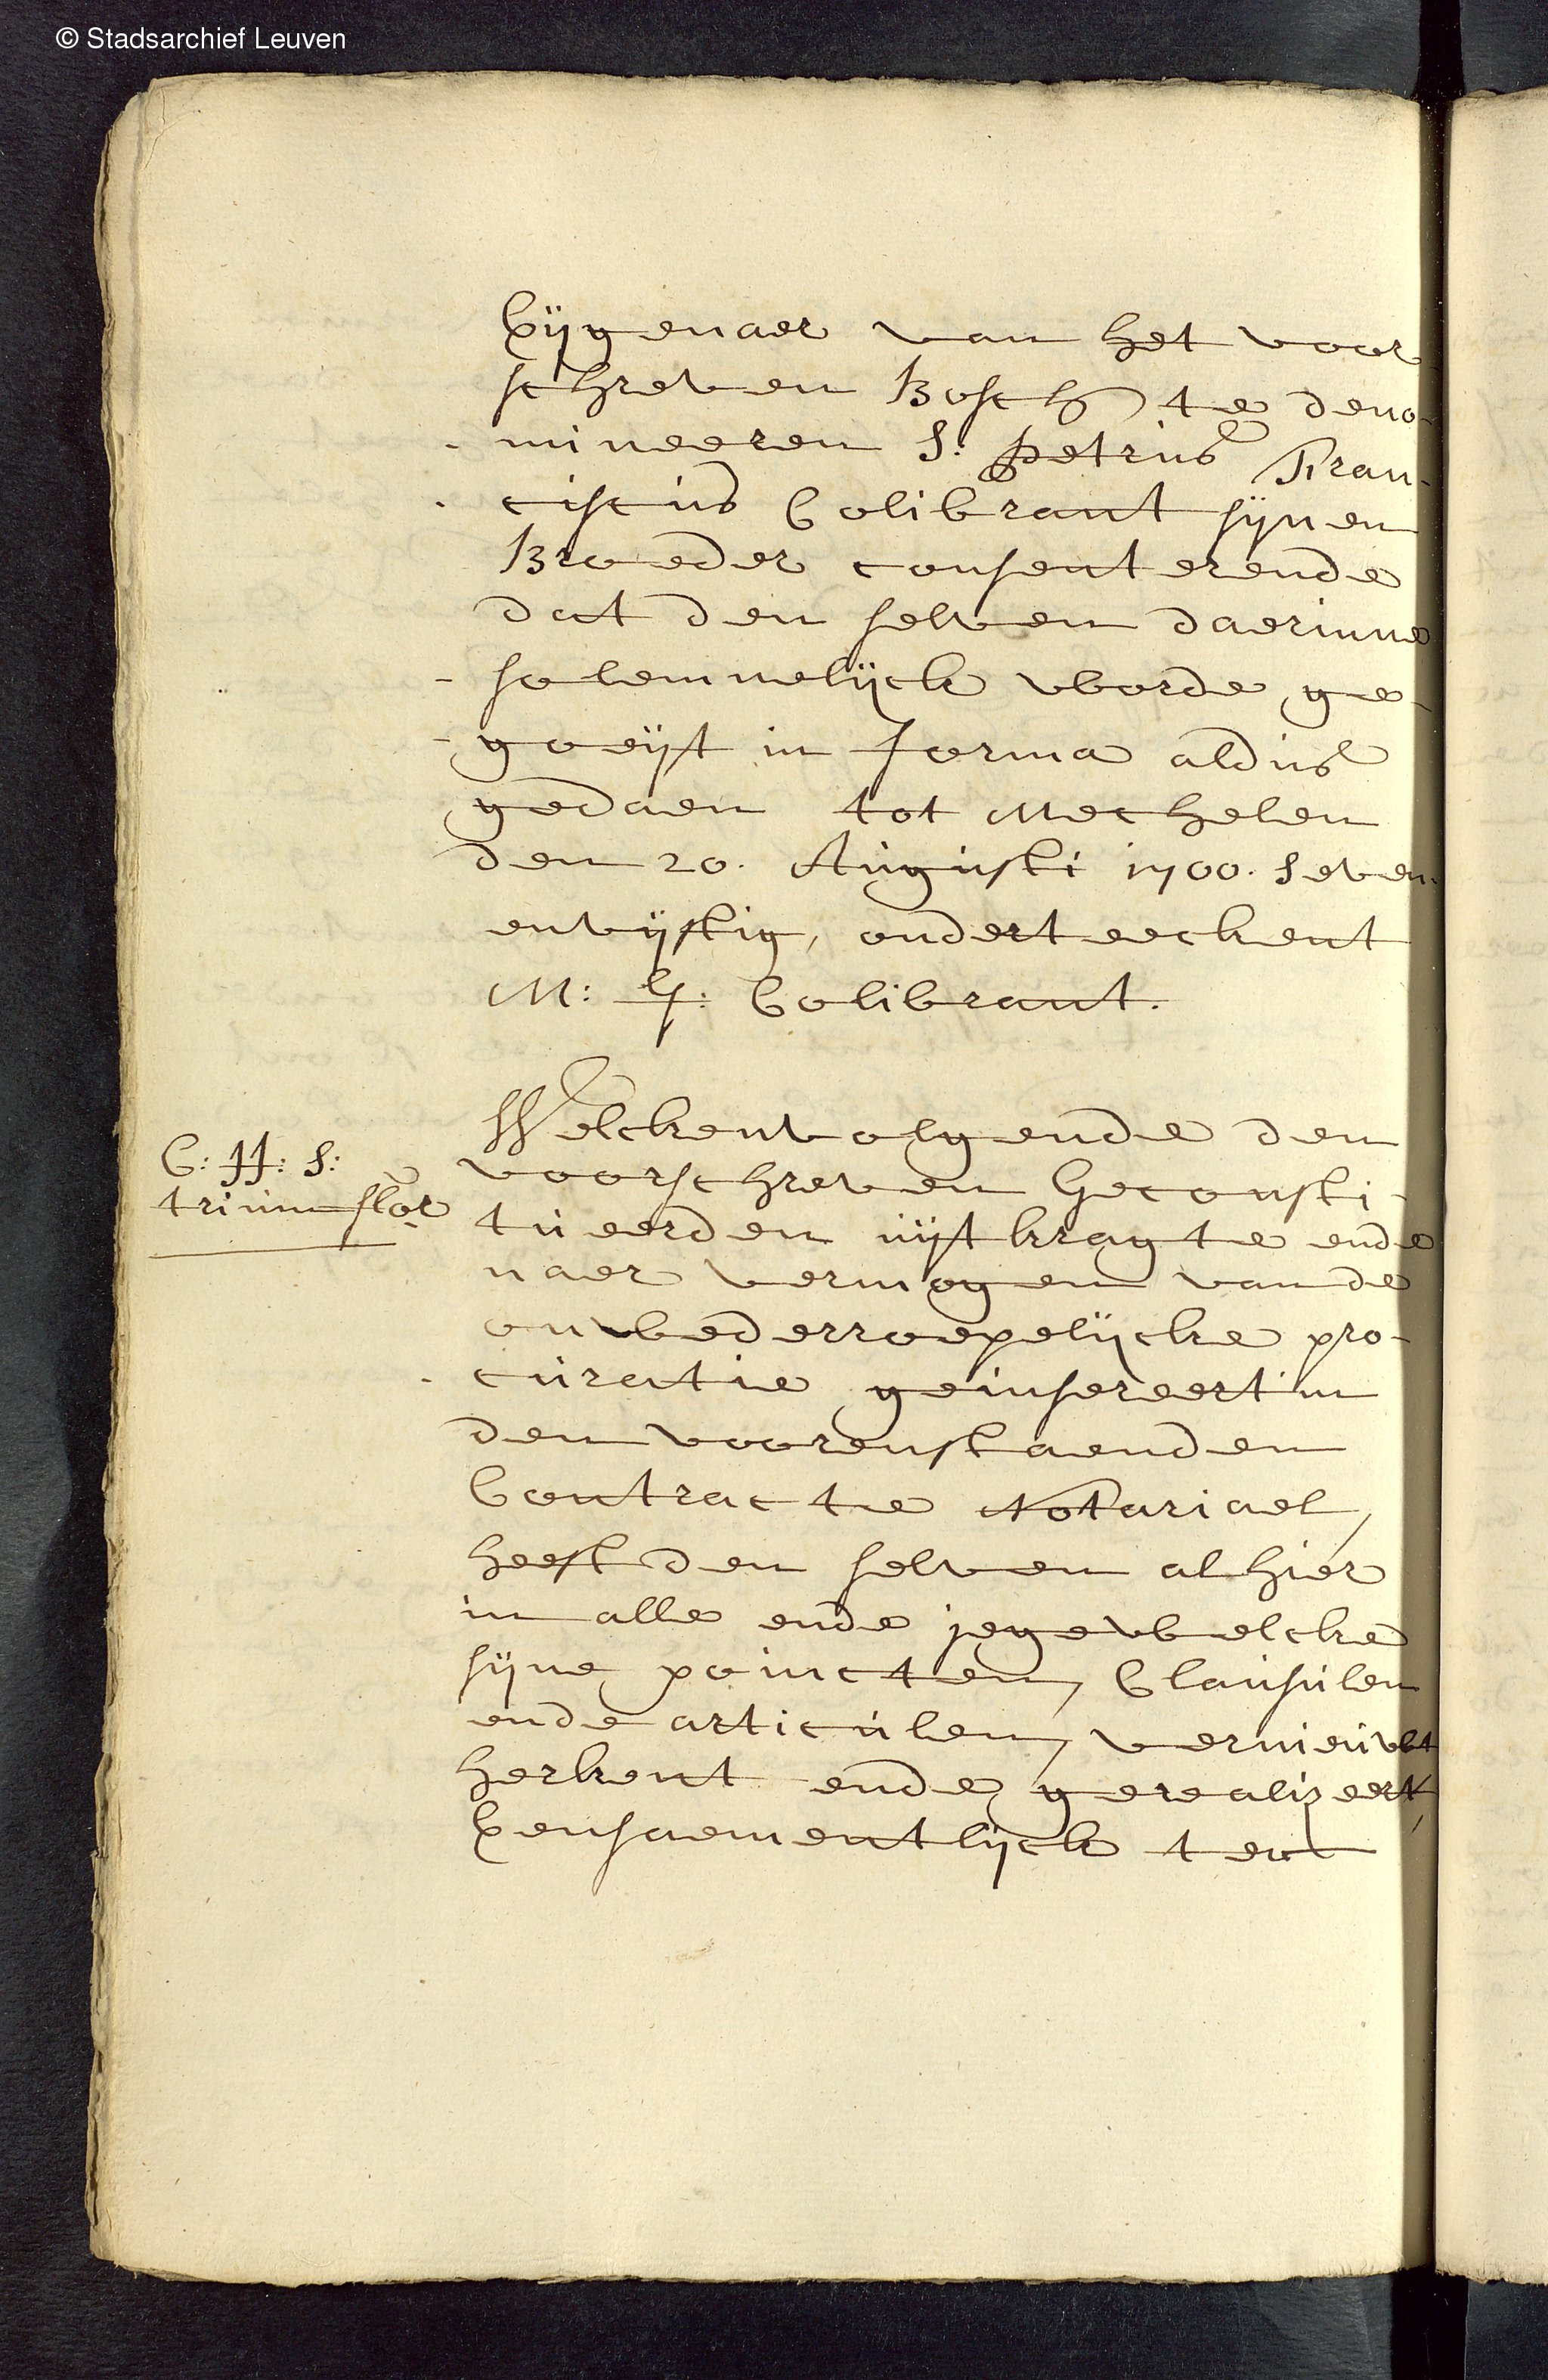 © Stadsarchief Leuven
Eijgenaer van het voor
schreven Bosch te deno-
- mineeren S: Petrus Fran-
- ciscus Colibrant sijnen
Broeder consenterende
dat den selven daerinne
- solemnelijck worde ge-
- goeijst in forma aldus
gedaen tot Mechelen
den 20. Augusti 1700. Seven
envijftig, onderteeckent
M: G: Colibrant.
Welckenvolgende den
voorschreven Geconsti-
tueerden uijt kragte ende
naer vermogen van de
onwederroepelijcke pro-
- curatie geinsereert in
den voorenstaenden
Contracte Notariael,
heeft den selven alhier
in alle ende jegewelcke
sijne poincten, Clausulen
ende articulen, vernieuwt
herkent ende gerealizeert,
Eensaementlijck ten
C: H: S:
trium flor